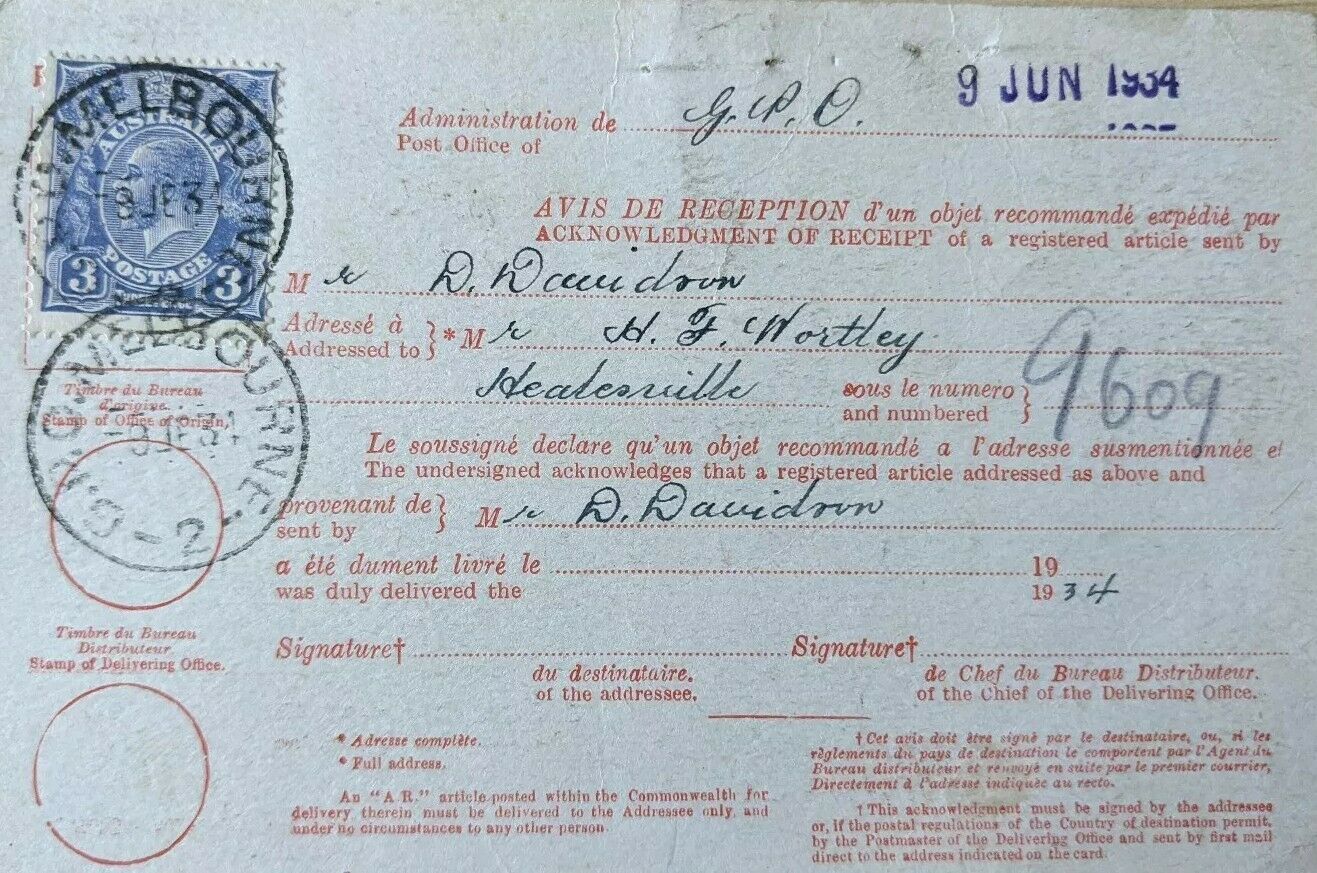 G.P.O. MELBOURNE
AUSTRALIA
8 JE 34
3 POSTAGE 3
G.P.O. MELBOURNE
JE 34
- 2 -
Administration de G. P. O. 9 JUN 1934
Post Office of
AVIS DE RECEPTION d'un objet recommandé expédié par
ACKNOWLEDGMENT OF RECEIPT of a registered article sent by
Mr D. Davidson
Adressé à
Addressed to } * Mr H. F. Wortley
Timbre du Bureau
d'origine.
Stamp of Office of Origin,
Healesville sous le numero
and numbered } 9609
Le soussigné declare qu'un objet recommandé a l'adresse susmentionnée et
The undersigned acknowledges that a registered article addressed as above and
provenant de
sent by } Mr D. Davidson
a été dument livré le 19
was duly delivered the 1934
Timbre du Bureau
Distributeur.
Stamp of Delivering Office.
Signature† Signature†
du destinataire. de Chef du Bureau Distributeur.
of the addressee. of the Chief of the Delivering Office.
* Adresse complète.
* Full address.
An "A.R." article posted within the Commonwealth for
delivery therein must be delivered to the Addressee only, and
under no circumstances to any other person
† Cet avis doit être signé par le destinataire, ou, si les
règlements du pays de destination le comportent par l'Agent du
Bureau distributeur et renvoyé en suite par le premier courrier,
Directement à l'adresse indiquée au recto.
† This acknowledgment must be signed by the addressee
or, if the postal regulations of the Country of destination permit,
by the Postmaster of the Delivering Office and sent by first mail
direct to the address indicated on the card.